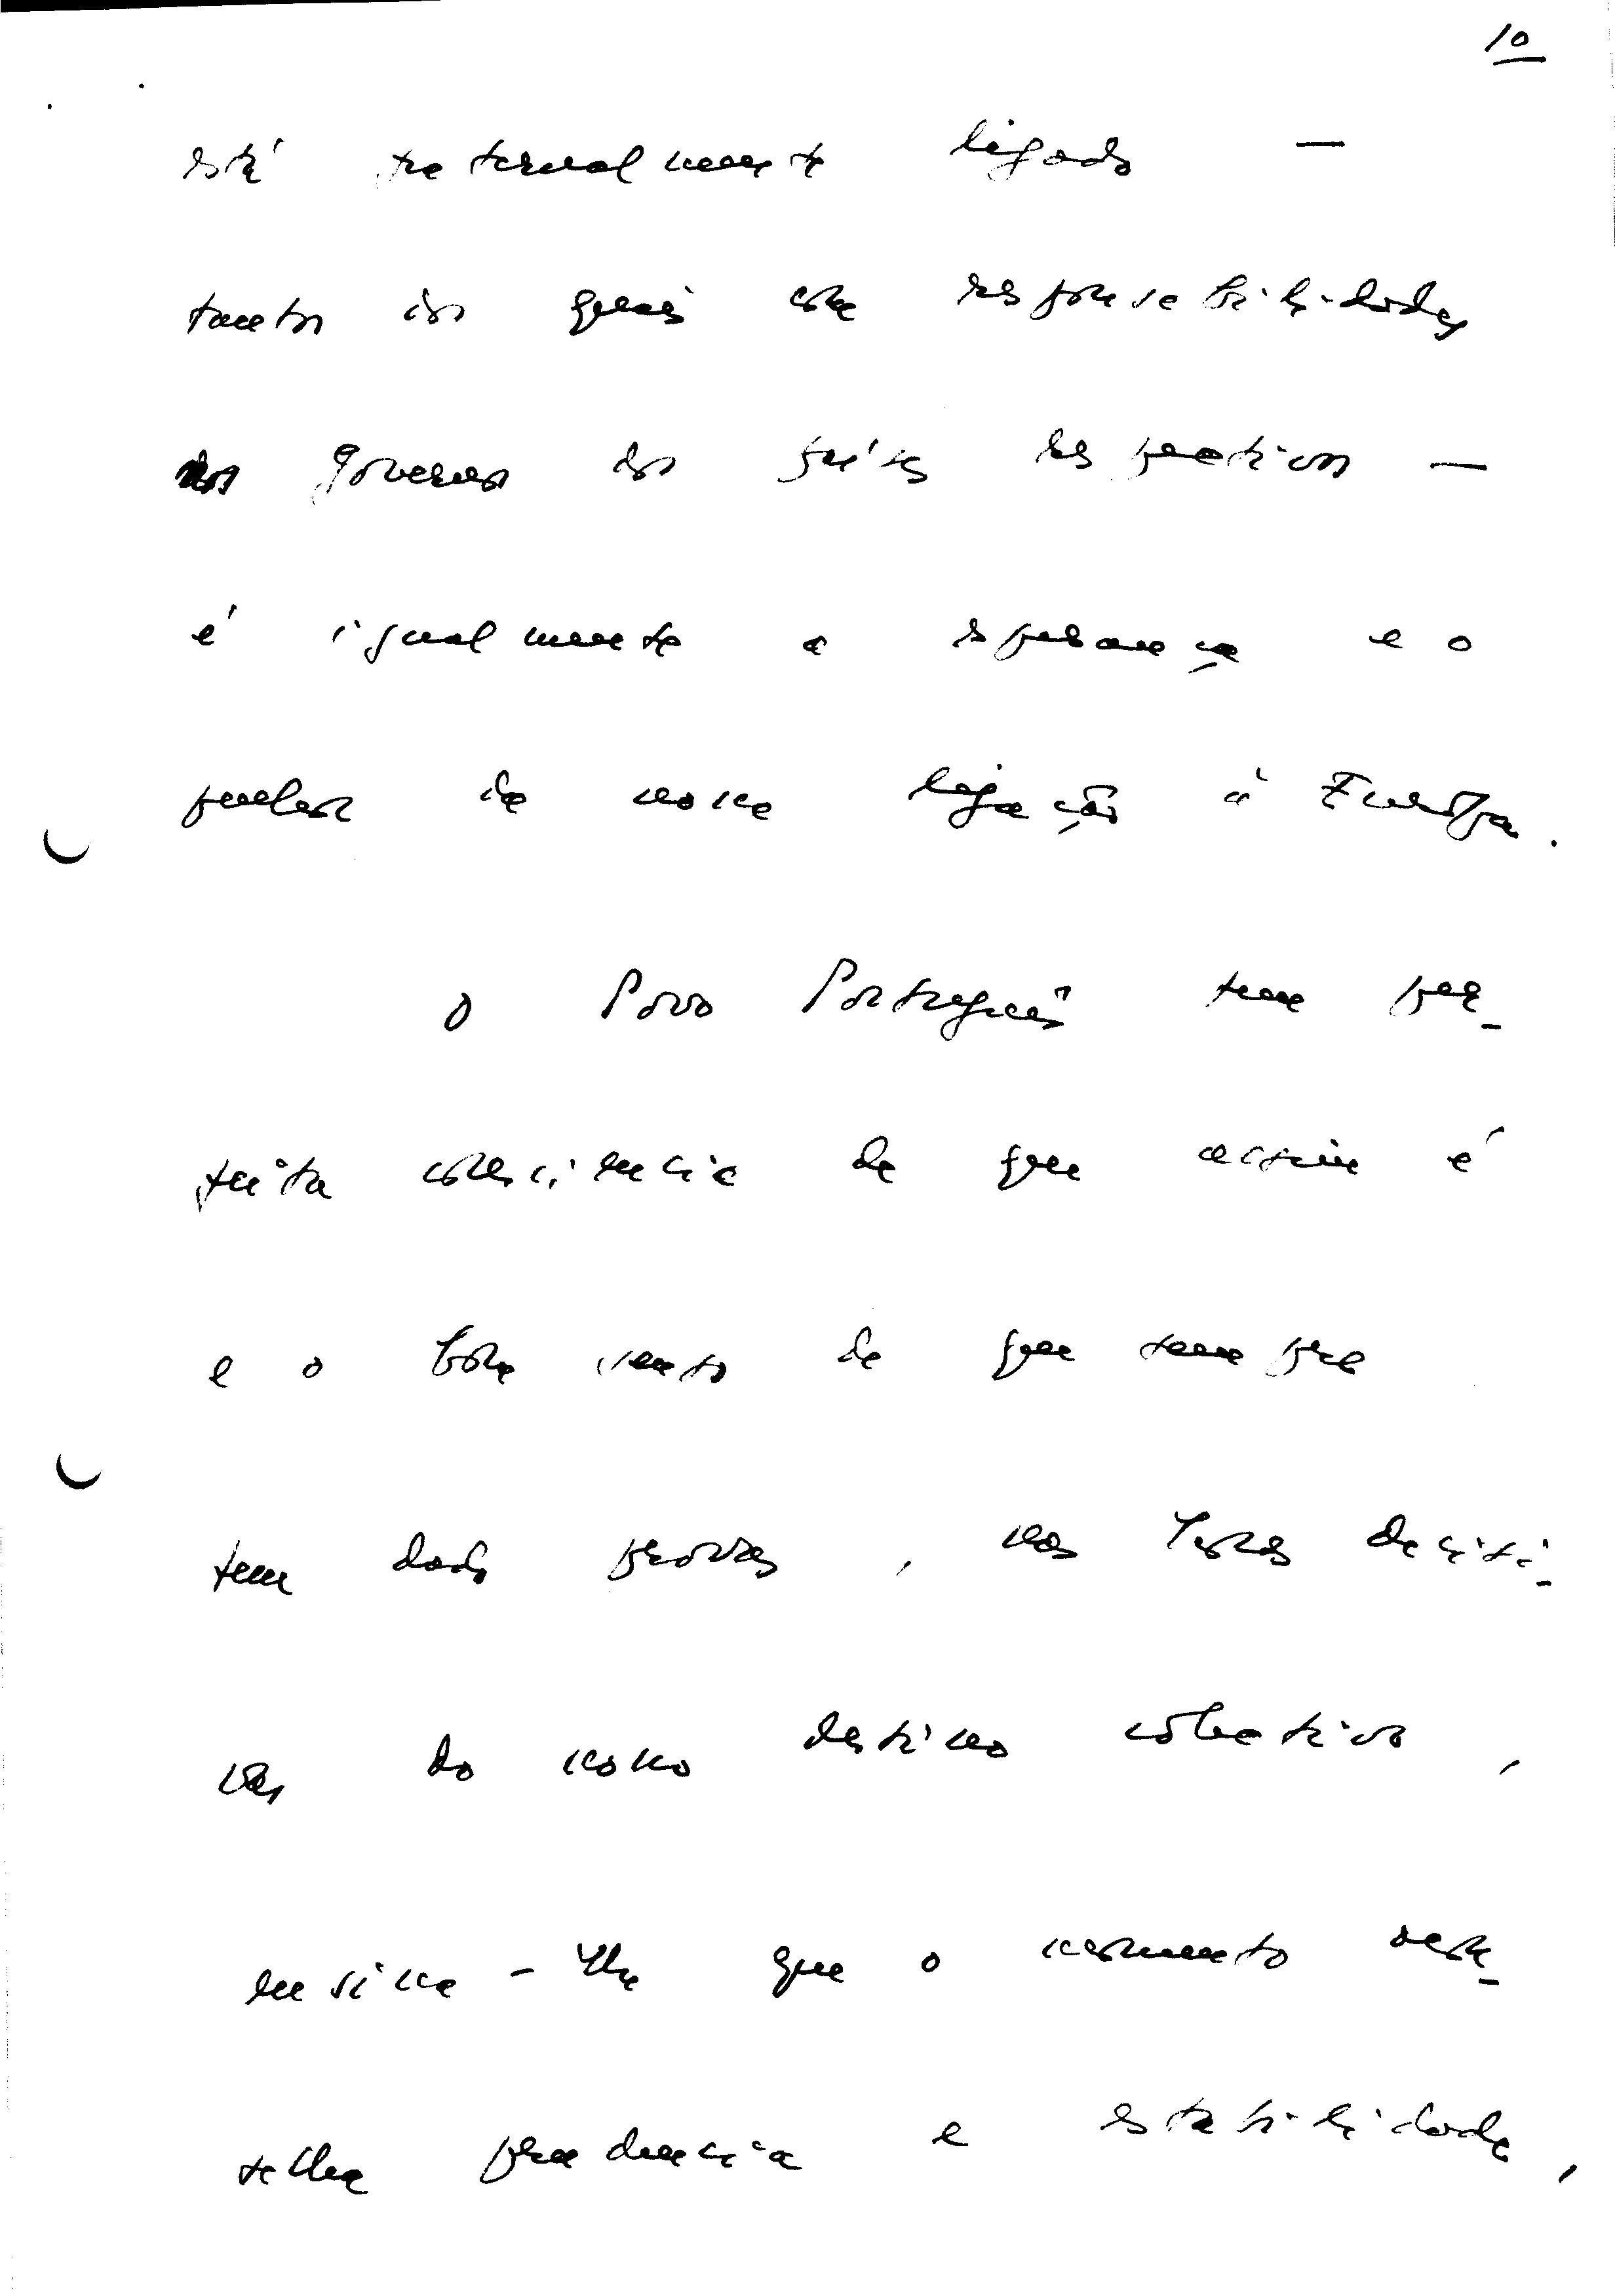 10
está fraternalmente ligado —
tantos dos quais com responsabilidades
nos governos dos países respectivos —
é igualmente a esperança e o
penhor da nossa ligação à Europa.
O Povo Português tem per-
feita consciência de que assim é
e o bom senso de que sempre
tem dado provas, nas horas decisi-
vas do nosso destino colectivo,
ensina-lhe que o momento acon-
selha prudência e estabilidade,